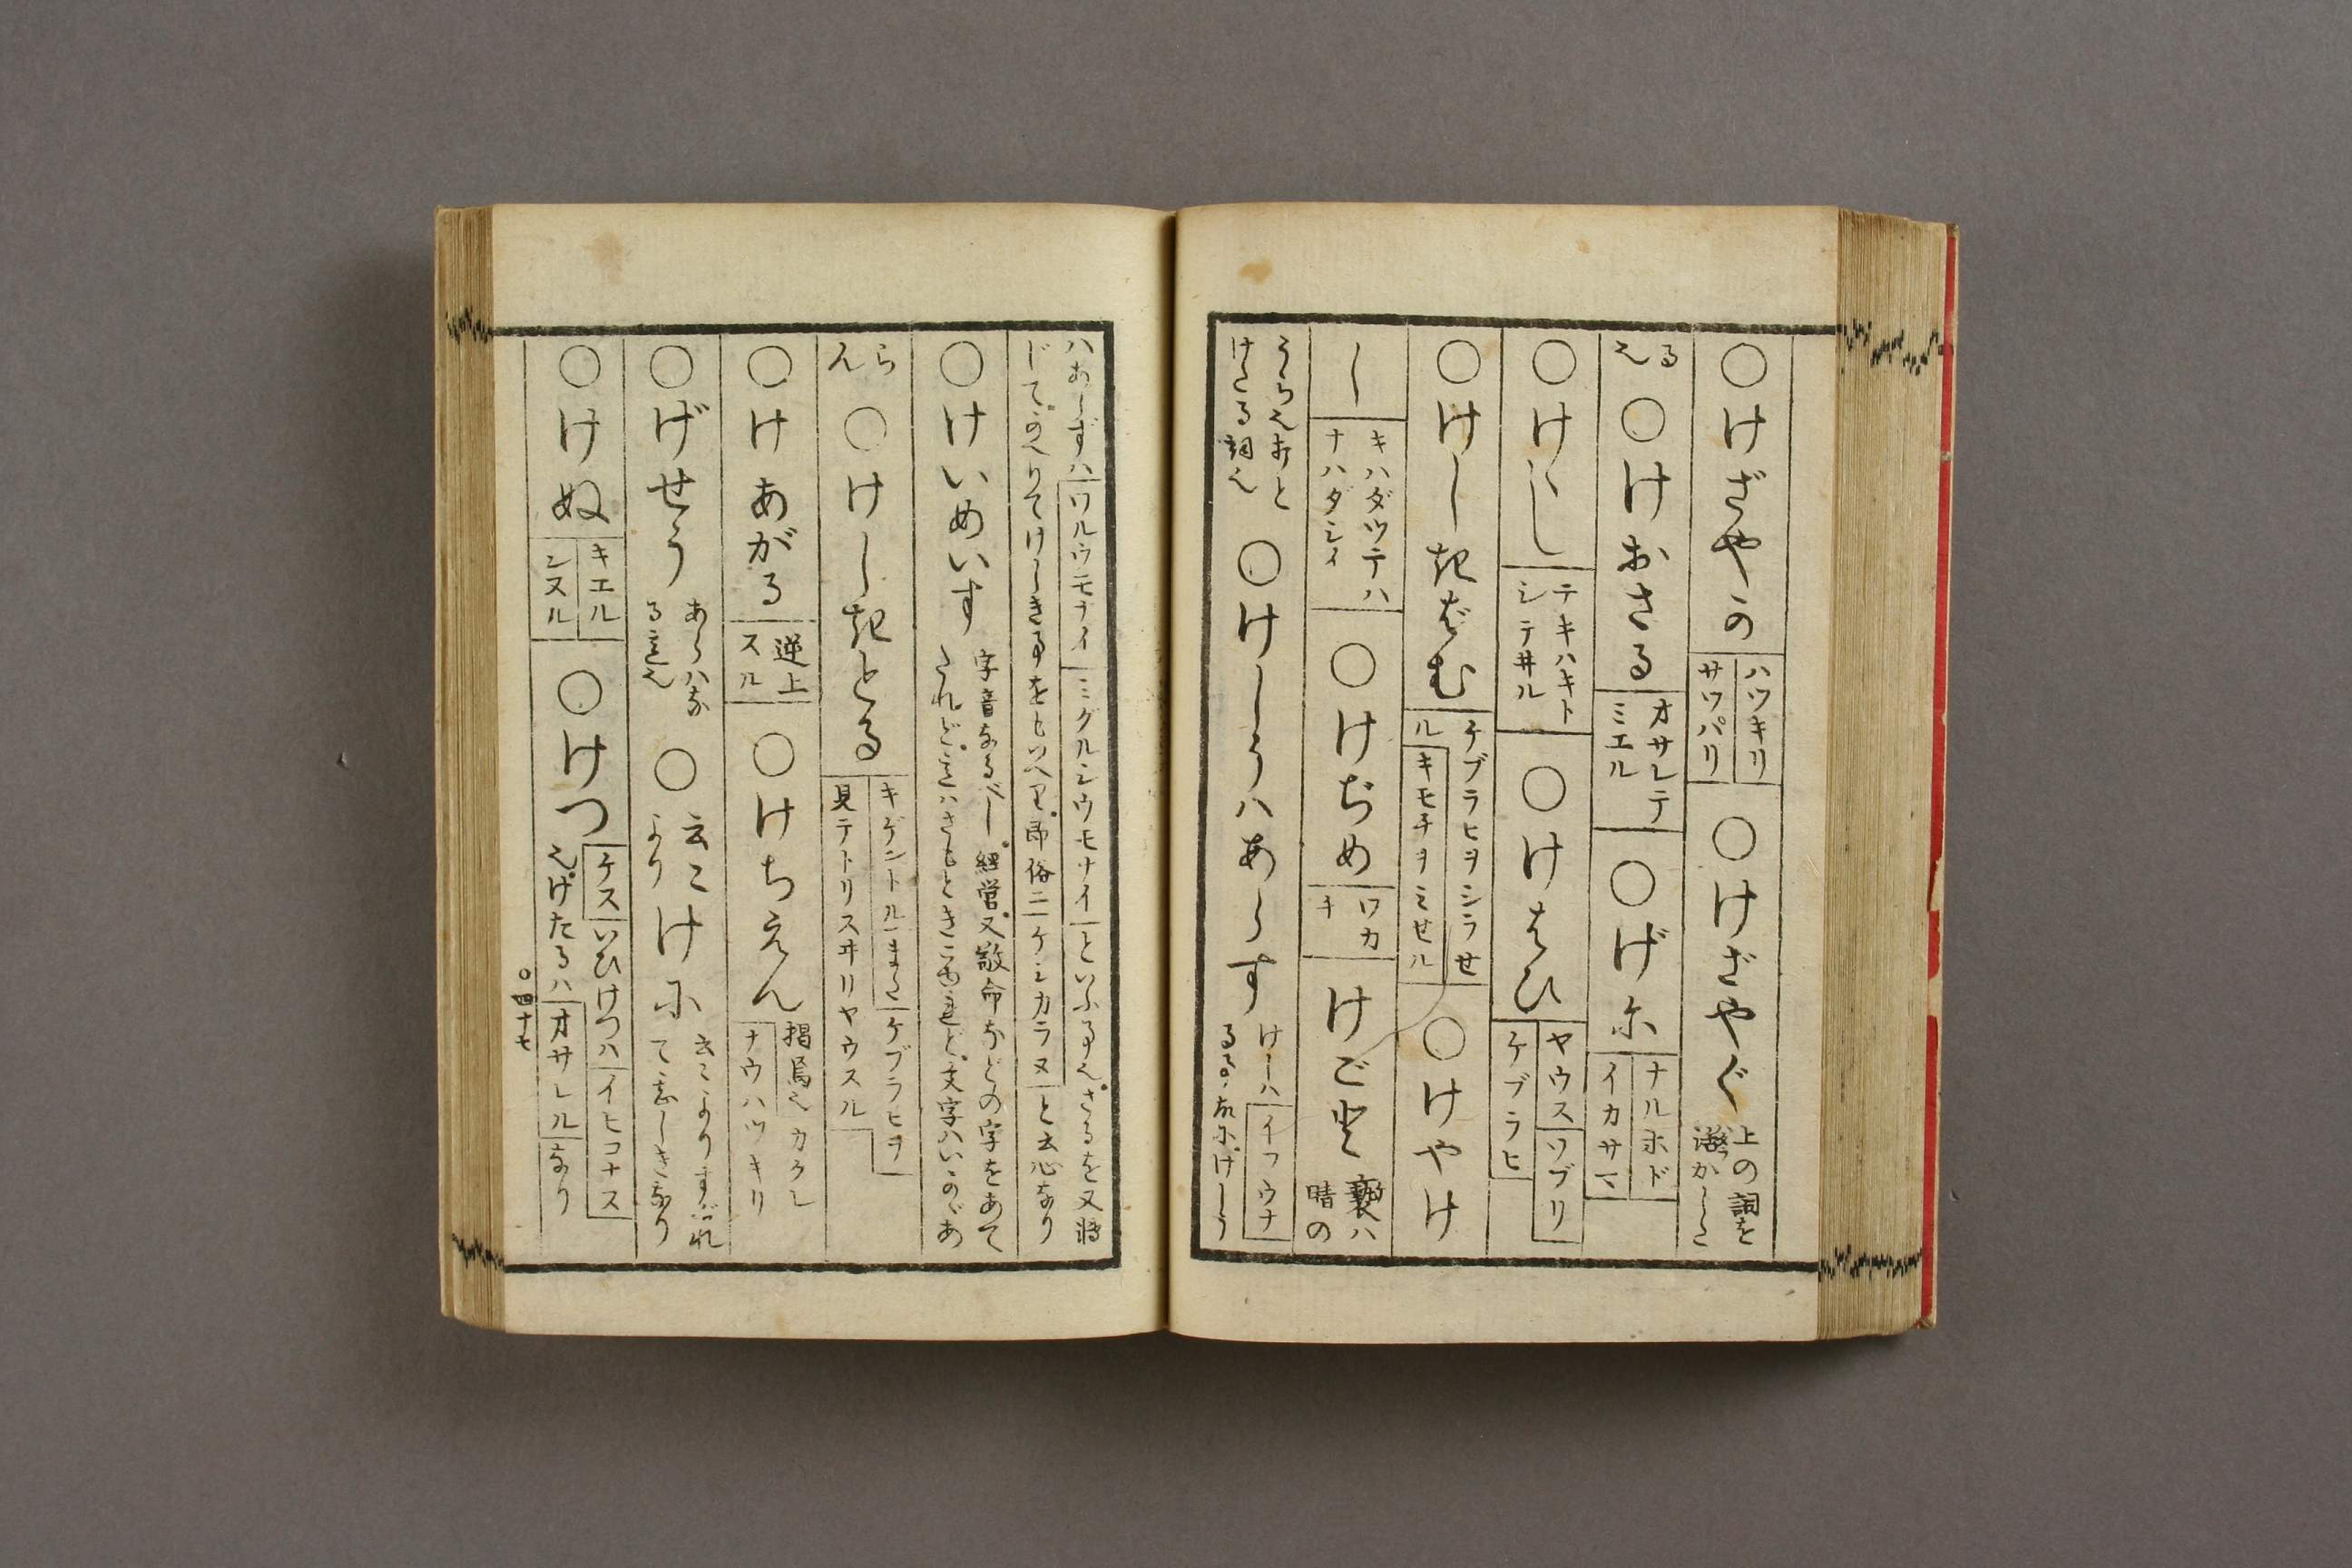 ○けざやか ハツキリ サワパリ ○けざやぐ 上の詞を活かした
る也 ○けおさる オサレテミエル ○げに ナルホド イカサマ
○けにくし テキハキトシテヰル ○けはひ ヤウス ソブリ ケブラヒ
○けしきばむ ケブラヒヲシラセル キモチヲミせル ○けやけ
し キハダツテハナハダシイ ○けぢめ ワカチ けごろも 褻ハ晴の
うらえおとけたる詞也 ○けしうハあらず けしハ イフウナ るる故にけしう
ハあらずハ ワルウモナイ ミグルシウモナイ といふ事也さるを又転
じてのべりてけしきる事をもいへり即俗ニ ケシカラヌ と云心なり
○けいめいす 字音なるべし経営又敬命などの字をあてたれど意ハさもときこゆれど文字ハいかゞあ
らん ○けしきとる キゲントル また ケブラヒヲ見テトリスヰリヤウスル
○けあがる 逆上スル ○けちえん 掲焉也 カクレナウハツキリ
○げせう あらハなる意也 ○云々けに 云々よりすぐれて云しきなり
○けぬ キエル シヌル ○けつ ケス いひけつハ イヒコナス 也けたるハ オサレル なり
○四十七